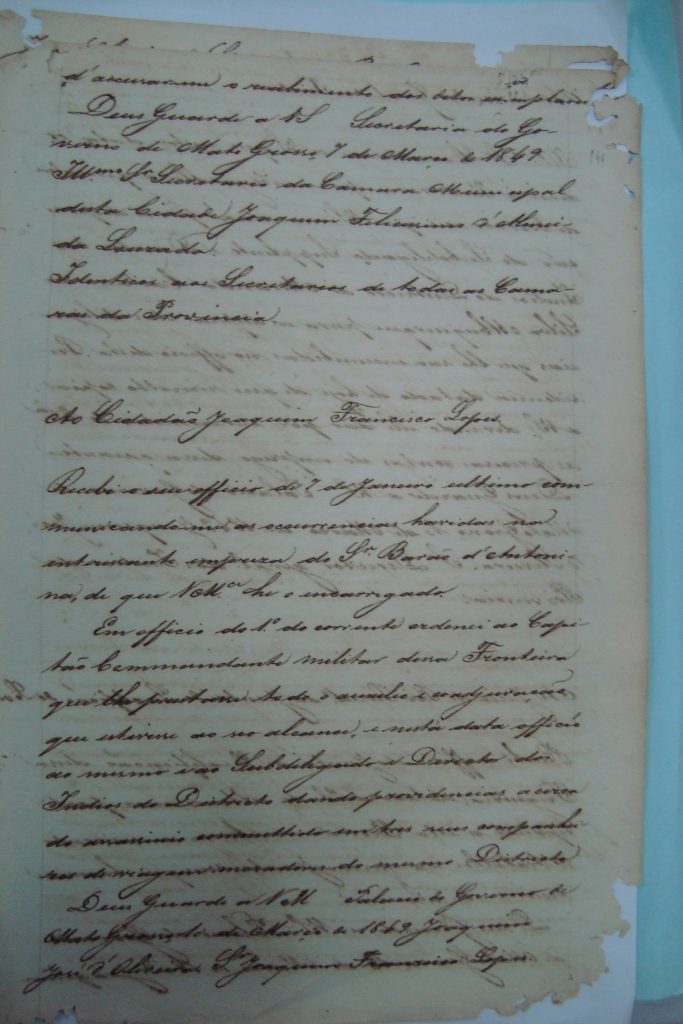 d'accusar-me o recebimento dos ditos exemplares
Deus Guarde a VS Secretaria do Go-
verno de Mato Grosso, 7 de Março de 1849
Illmo Sr Secretario da Camara Municipal
desta Cidade Joaquim Feliciano d'Almei-
da Louzada
Identicos aos Secretarios de todas as Cama-
ras da Provincia
Ao Cidadão Joaquim Francisco Lopes
Recebi o seu officio de 7 de Janeiro ultimo com-
municando-me as occurrencias havidas na
interessante empreza do Sr Barão d'Antoni-
na, de que VM.ce he o encarregado.
Em officio do 1º do corrente ordenei ao Capi-
tão Commandante militar dessa Fronteira
que lhe prestasse todo o auxilio e coadjuvação
que estivesse ao seo alcance, e nesta data officio
ao mesmo e ao Subdelegado e Director dos
Indios do Districto dando providencias acerca
do assassinio commettido em tres seus companhei-
ros de viagem moradores do mesmo Districto
Deus Guarde a VM Palacio do Governo de
Mato Grosso de Março de 1849 Joaquim
José d'Oliveira Sr Joaquim Francisco Lopes